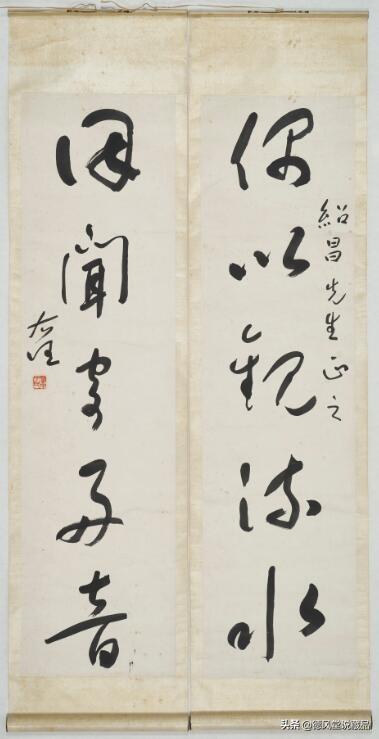 紹昌先生正之
偶以觀流水
因聞音
右任
头条 @德风堂说藏品